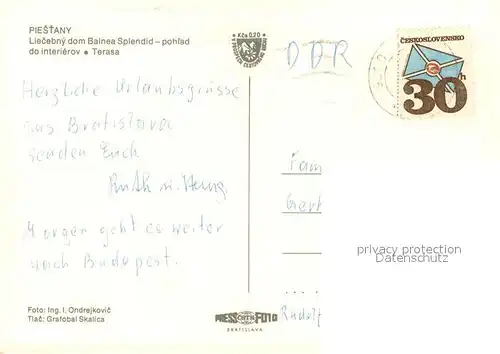 PIEŠŤANY
Liečebný dom Balnea Splendid – pohľad
do interiérov • Terasa
Kčs 0,20
DDR
ČESKOSLOVENSKO
30h
Herzliche Urlaubsgrüsse
aus Bratislava
senden Euch
Ruth u.
Morgen geht es weiter
nach Budapest.
Fam
Gert
privacy protection
Datenschutz
Rudolf
Foto: Ing. I. Ondrejkovič
Tlač: Grafobal Skalica
PRESSFOTO
BRATISLAVA